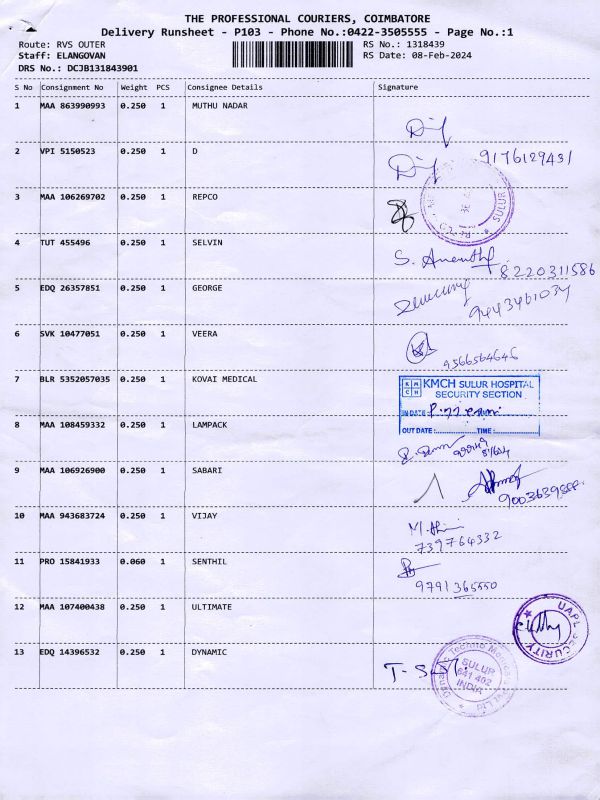 THE PROFESSIONAL COURIERS, COIMBATORE
Delivery Runsheet - P103 - Phone No.:0422-3505555 - Page No.:1
Route: RVS OUTER RS No.: 1318439
Staff: ELANGOVAN RS Date: 08-Feb-2024
DRS No.: DCJB131843901
S No Consignment No Weight PCS Consignee Details Signature
1 MAA 863990993 0.250 1 MUTHU NADAR
2 VPI 5150523 0.250 1 D 9176129431
3 MAA 106269702 0.250 1 REPCO
SULUR
4 TUT 455496 0.250 1 SELVIN
8220311586
5 EDQ 26357851 0.250 1 GEORGE
9443461034
6 SVK 10477051 0.250 1 VEERA
9566564646
7 BLR 5352057035 0.250 1 KOVAI MEDICAL
KMCH KMCH SULUR HOSPITAL
SECURITY SECTION
IN DATE
OUT DATE: TIME:
8 MAA 108459332 0.250 1 LAMPACK
9 MAA 106926900 0.250 1 SABARI
10 MAA 943683724 0.250 1 VIJAY
739764332
11 PRO 15841933 0.060 1 SENTHIL
9791365550
12 MAA 107400438 0.250 1 ULTIMATE
UAPL SECURITY
13 EDQ 14396532 0.250 1 DYNAMIC
SULUR
641 402
INDIA